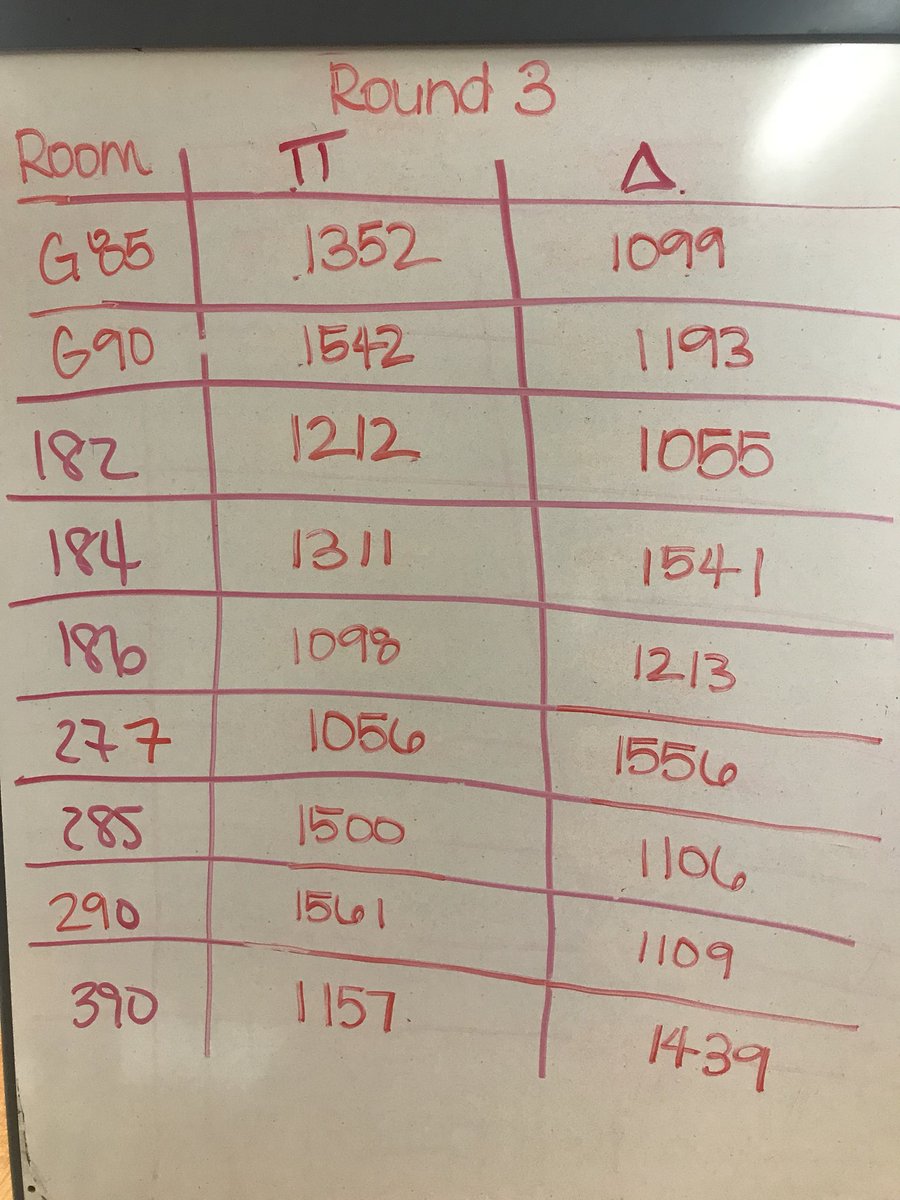 Round 3
Room π Δ
G85 1352 1099
G90 1542 1193
182 1212 1055
184 1311 1541
186 1098 1213
277 1056 1556
285 1500 1106
290 1561 1109
390 1157 1439